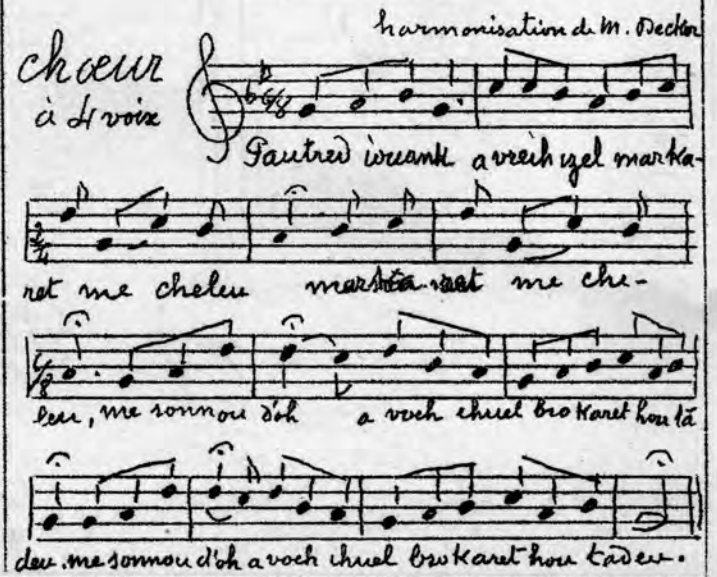 harmonisation de M. Decker
chœur
à 4 voix
6/8
Pautred iouank a vreih izel marka-
2/4
ret me cheleu mar me che-
6/8
leu, me sonnou d'oh a voch ihuel bro karet hou tã
deu. me sonnou d'oh a voch ihuel bro karet hou tadeu.